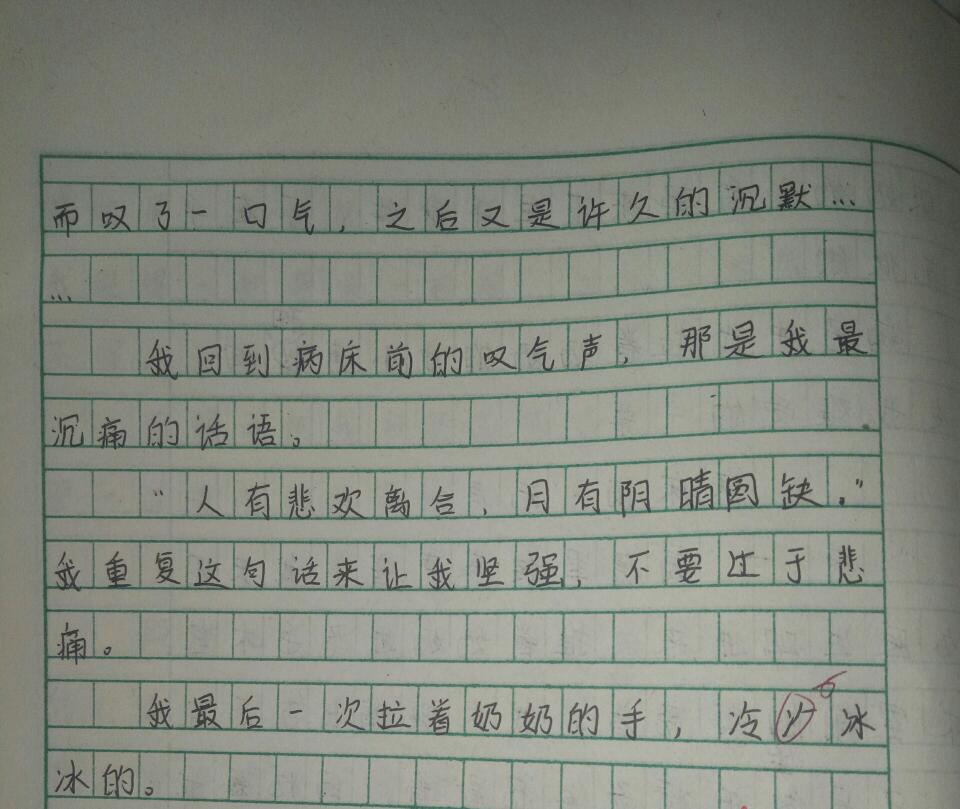 而叹了一口气，之后又是许久的沉默…
…
我回到病床前的叹气声，那是我最
沉痛的话语。
“人有悲欢离合，月有阴晴圆缺。”
我重复这句话来让我坚强，不要过于悲
痛。
我最后一次拉着奶奶的手，冷冰
冰的。